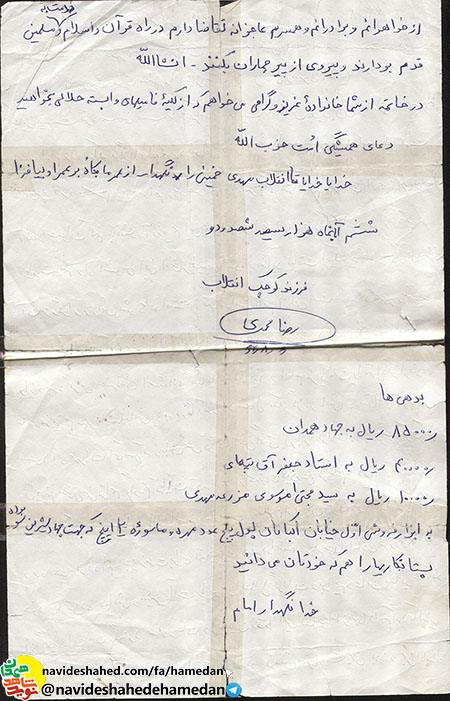 از خواهرانم و برادرانم و همسرم عاجزانه تقاضا دارم در راه قرآن و اسلام و مسلمین
قدم بردارند و پیروی از پیر جماران بکنند - انشاالله
در خاتمه از شما خانواده عزیز و گرامی می خواهم که از کلیه فامیلهای وابسته حلالی بخواهید
دعای همیشگی امت حزب الله
خدایا خدایا تا انقلاب مهدی خمینی را نگهدار از عمر ما بکاه بر عمر او بیافزا
ششم آبانماه هزار سیصد شصد و دو
فرزند کوچک انقلاب
رضا
بدهی ها
۸۵۰۰۰ ریال به جهاد همدان
ریال به استاد جعفر آقای
۱۰۰۰۰ ریال به سید مجتبی موسوی مزرعه مهدی
به ابزار فروشی اول خیابان پول پنج عدد مهره و ماسوره اینچ که جهت جهاد
بستانکاریها را هم که خودتان می دانید
خدا نگهدار امام
navideshahed.com/fa/hamedan
@navideshahedehamedan